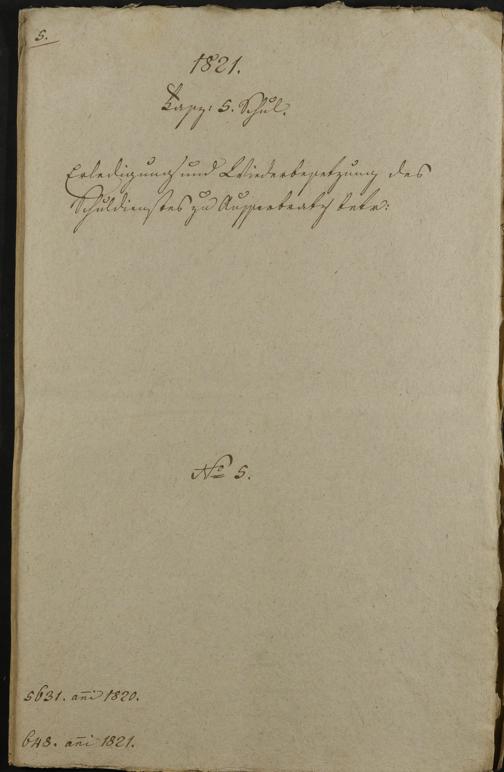 5.
1821.
Kapp: 5. Schul.
Erledigung und Wiederbesetzung des
Schuldienstes zu Ausserbraz betr:
No 5.
5631. añi 1820.
648. añi 1821.